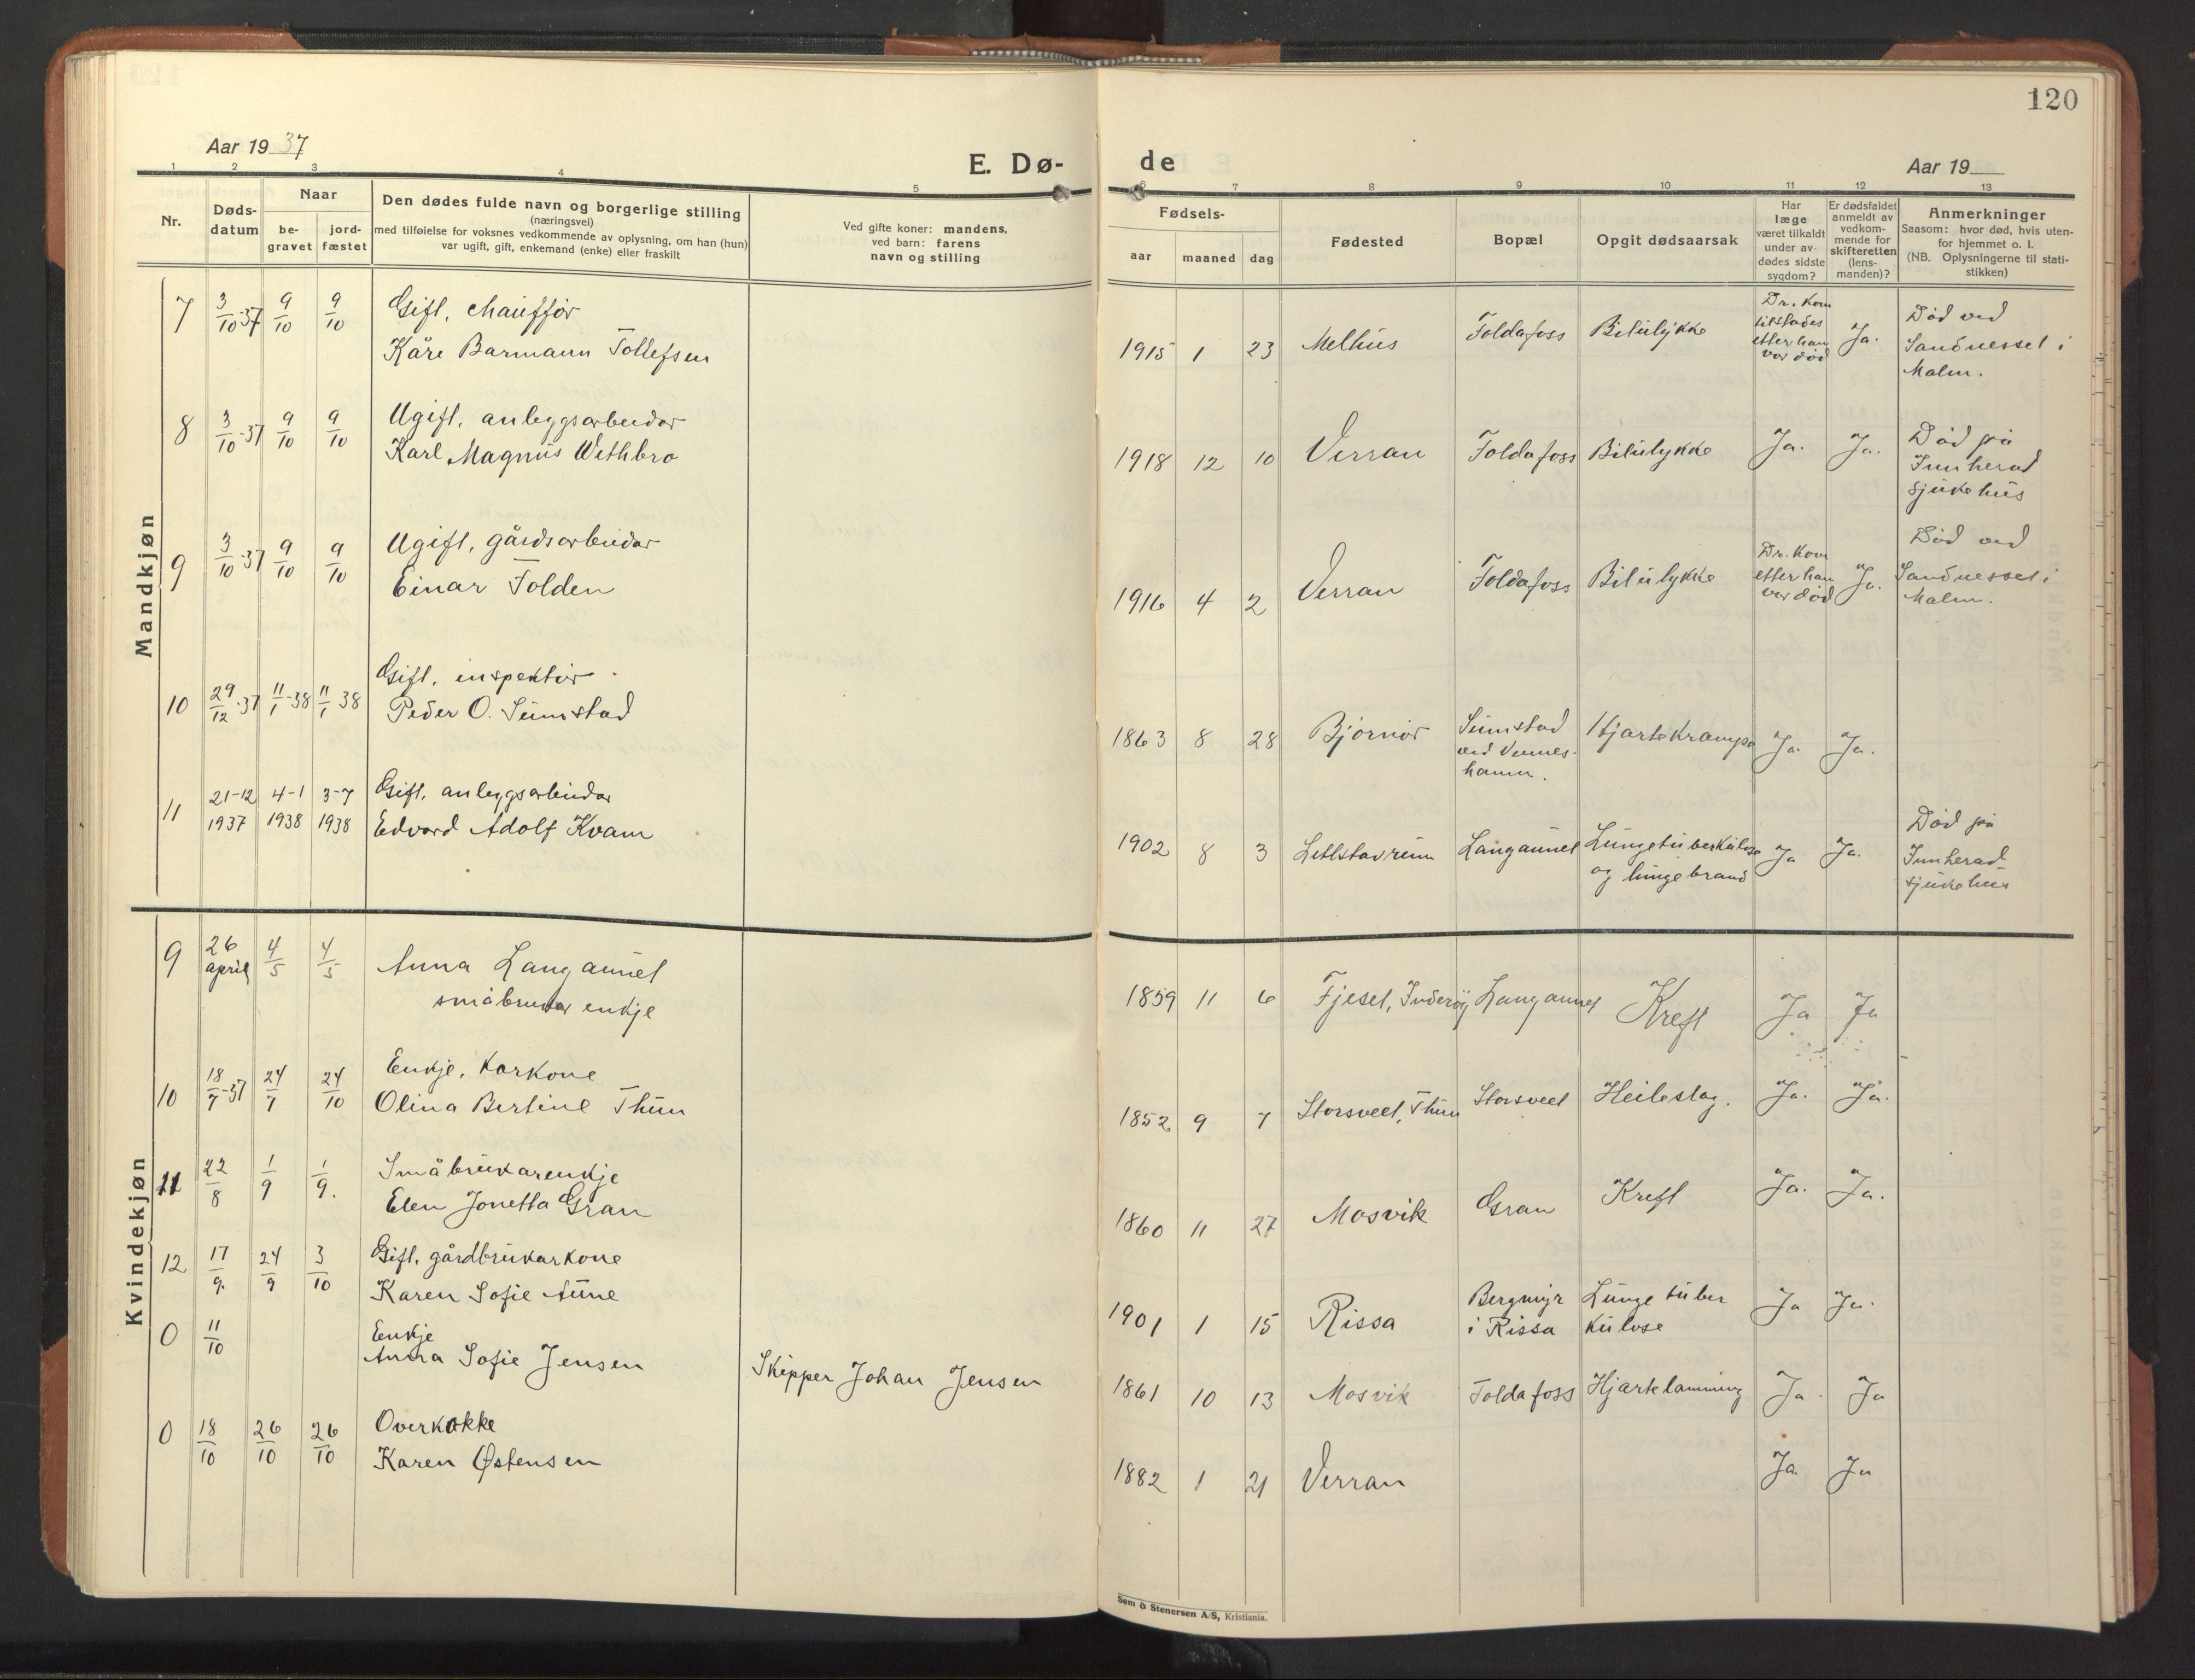 120
Aar 19 37
E. Dø-
de
Aar 19
1 2 3 4 5 6 7 8 9 10 11 12 13
Nr.
Døds-
datum
Naar
be-
gravet
jord-
fæstet
Den dødes fulde navn og borgerlige stilling
(næringsvei)
med tilføielse for voksnes vedkommende av oplysning, om han (hun)
var ugift, gift, enkemand (enke) eller fraskilt
Ved gifte koner: mandens,
ved barn: farens
navn og stilling
Fødsels-
aar maaned dag
Fødested
Bopæl
Opgit dødsaarsak
Har
læge
været tilkaldt
under av-
dødes sidste
sygdom?
Er dødsfaldet
anmeldt av
vedkom-
mende for
skifteretten
(lens-
manden)?
Anmerkninger
Saasom: hvor død, hvis uten-
for hjemmet o. l.
(NB. Oplysningerne til stati-
stikken)
Mandkjøn
7 3/10-37 9/10 9/10 Gift, chauffør
Kåre Barmann Tollefsen
1915 1 23 Melhus Foldafoss Bilulykke
Dr. kom
tilstades
etter han
var död
Ja.
Död ved
Sandnesset i
Malm.
8 3/10-37 9/10 9/10 Ugift, anleggsarbeidar
Karl Magnus Wethbro
1918 12 10 Verran Foldafoss Bilulykke Ja. Ja.
Död på
Innherad
sjukehus
9 3/10-37 9/10 9/10 Ugift, gårdsarbeidar
Einar Folden
1916 4 2 Verran Foldafoss Bilulykke
Dr. kom
etter han
var död
Ja.
Död ved
Sandnesset i
Malm.
10 29/12-37 11/1-38 11/1 38 Gift, inspektör
Peder O. Sumstad
1863 8 28 Bjørnör
Sumstad
ved Vennes-
hamn.
Hjartekrampe Ja. Ja.
11 21-12 4-1 3-7 Gift, anleggsarbeidar
1937 1938 1938 Edvard Adolf Kvam
1902 8 3 Litlstavrum Langaunet Lungetuberkulose
og lungebrand
Ja Ja.
Död på
Innherad
sjukehus
Kvindekjøn
9 26 april 4/5 4/5 Anna Langaunet
småbrukar enkje
1859 11 6 Fjeset, Inderöy Langaunet Kreft Ja Ja
10 18/7-37 24/7 24/10 Enkje, karkone
Olina Bertine Thun
1852 9 7 Storsveet, Thun Storsveet Heileslag. Ja. Ja.
11 22/8 1/9 1/9. Småbrukarenkje
Elen Jonetta Gran
1860 11 27 Mosvik Gran Kreft Ja. Ja.
12 17/9. 24/9 3/10 Gift, gårdbrukarkone
Karen Sofie Aune
1901 1 15 Rissa
Bergmyr
i Rissa
Lungetuber
kulose
Ja Ja.
0 11/10 Enkje
Anna Sofie Jensen Skipper Johan Jensen
1861 10 13 Mosvik Foldafoss Hjartelamming Ja. Ja
0 18/10 26/10 26/10 Overkokke
Karen Østensen
1882 1 21 Verran Ja. Ja
Sem & Stenersen A/S, Kristiania.